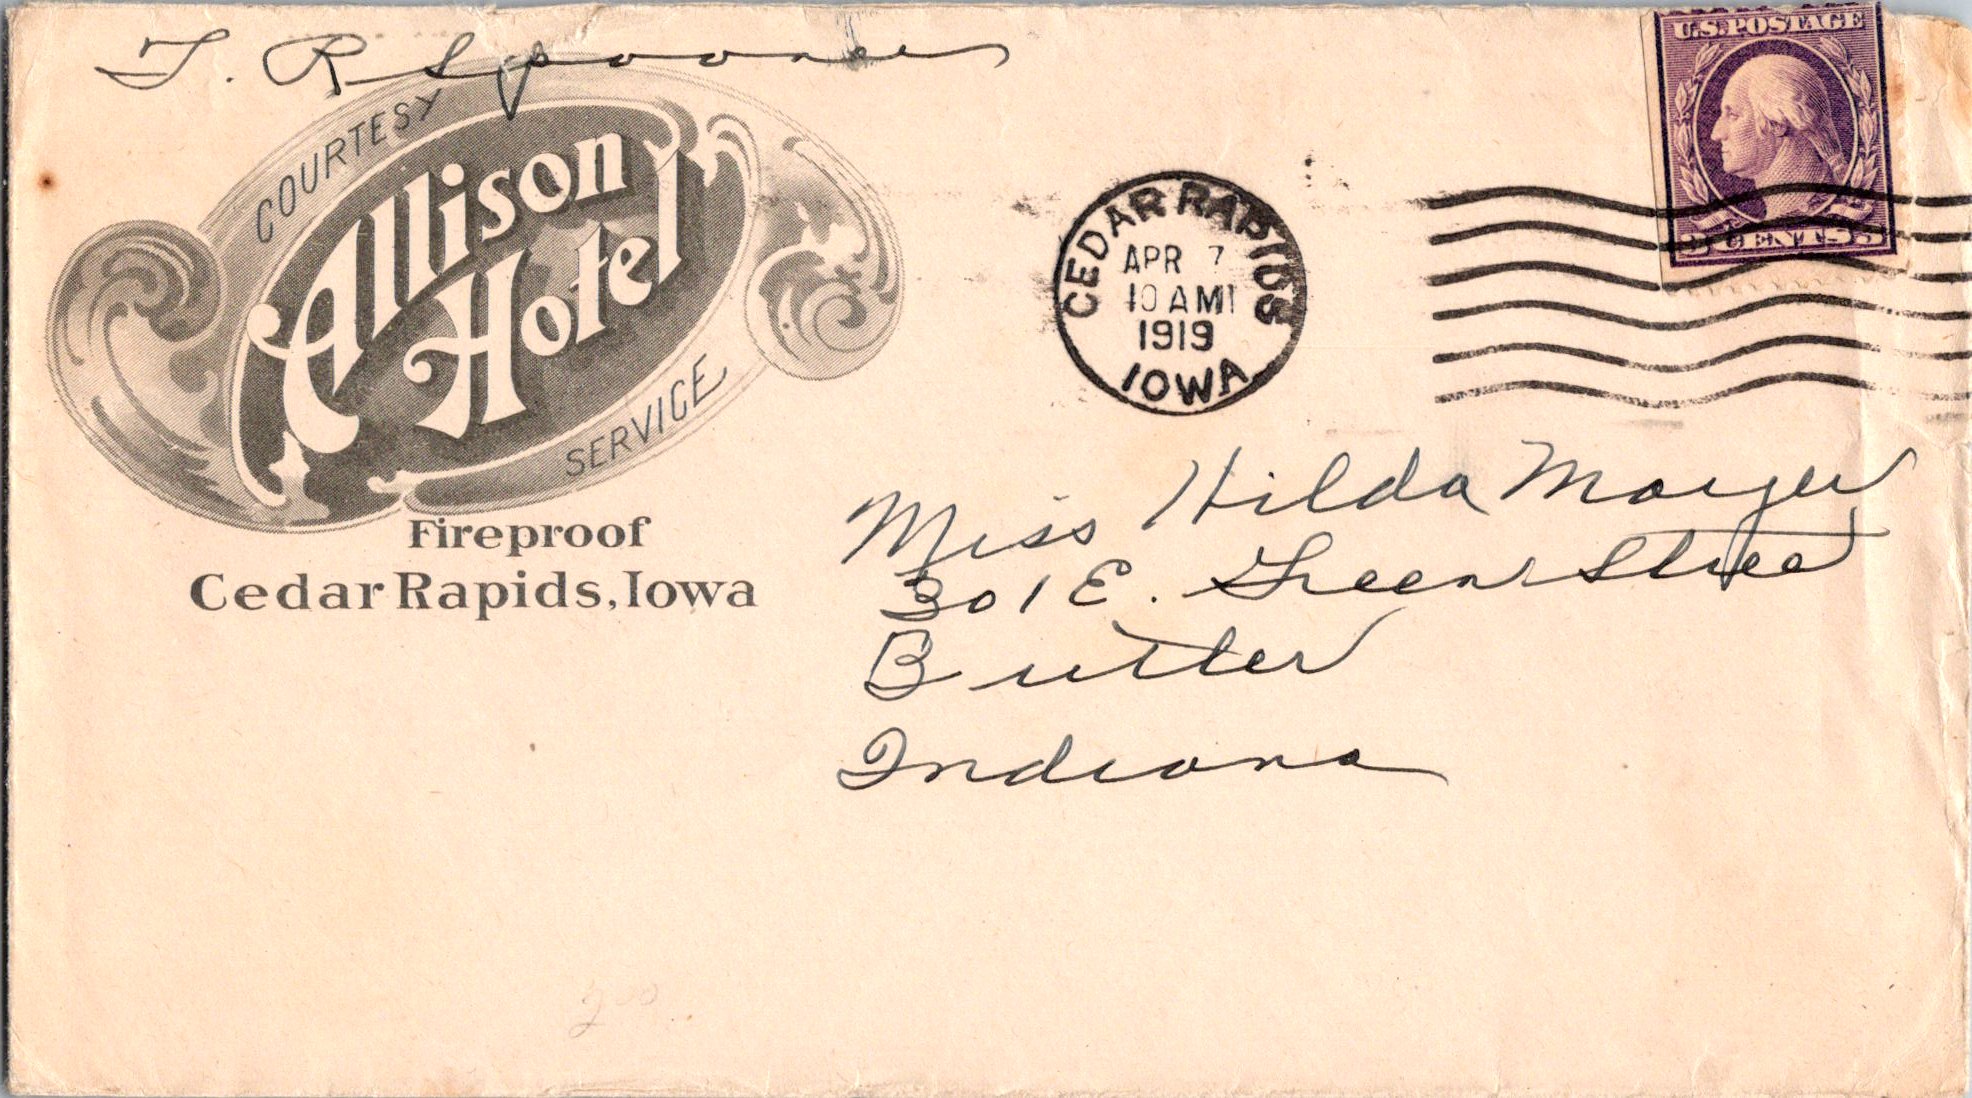 T. R. Spooner
COURTESY
Allison
Hotel
SERVICE
Fireproof
Cedar Rapids, Iowa
U.S. POSTAGE
3 CENTS 3
CEDAR RAPIDS
APR 7
10 AM
1919
IOWA
Miss Hilda
301 E. Green Street
Butler
Indiana